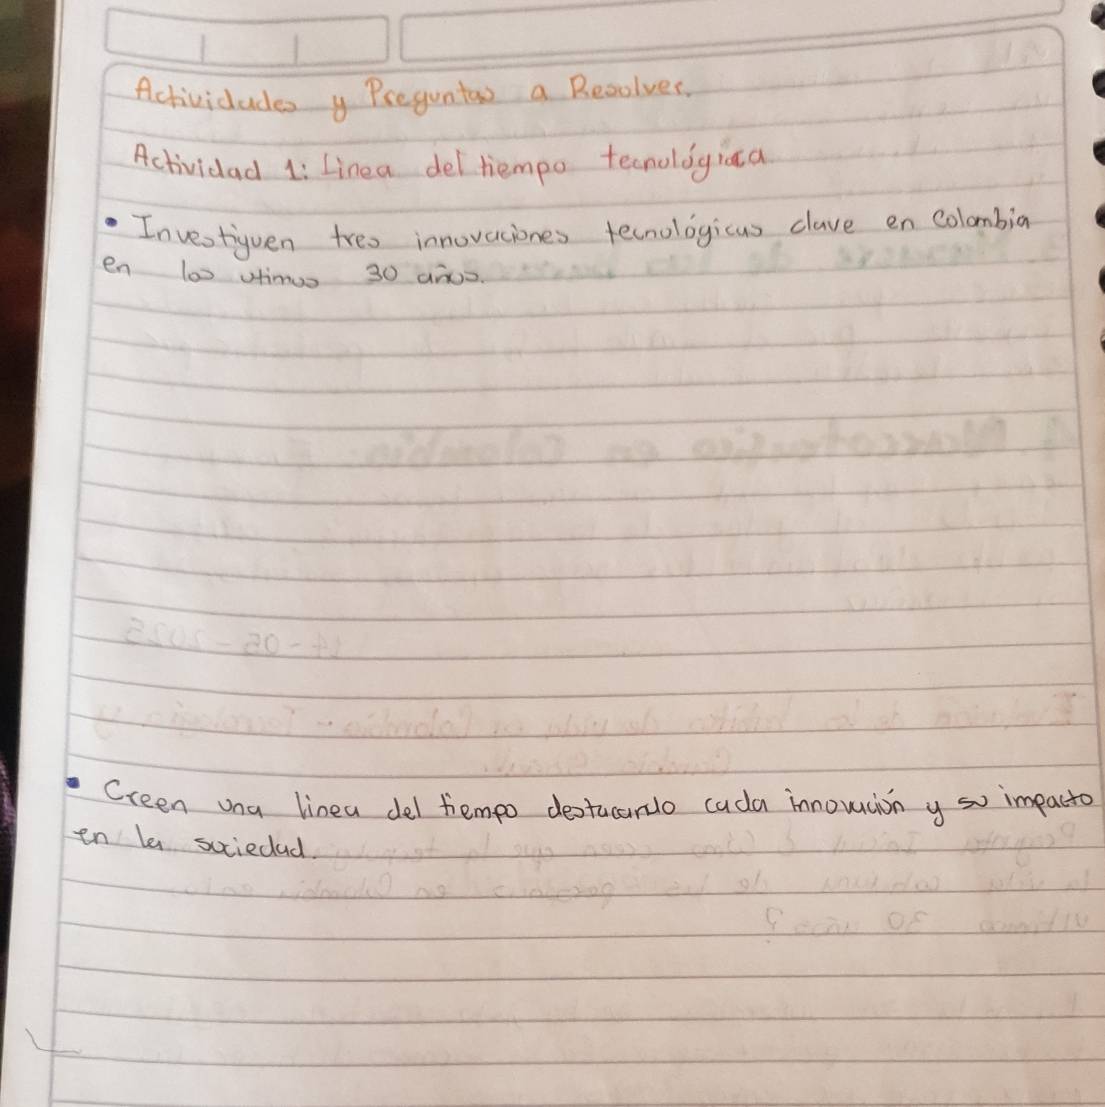 Actividades y Preguntas a Resolver.
Actividad 1: Linea del tiempo tecnológica
• Investiguen tres innovaciones tecnológicas clave en Colombia
en los utimos 30 años.
• Creen una linea del tiempo destacando cada innovación y su impacto
en la sociedad.